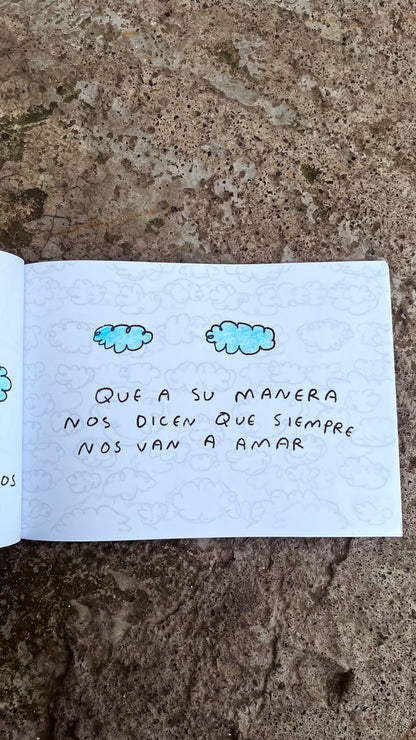 OS
QUE A SU MANERA
NOS DICEN QUE SIEMPRE
NOS VAN A AMAR